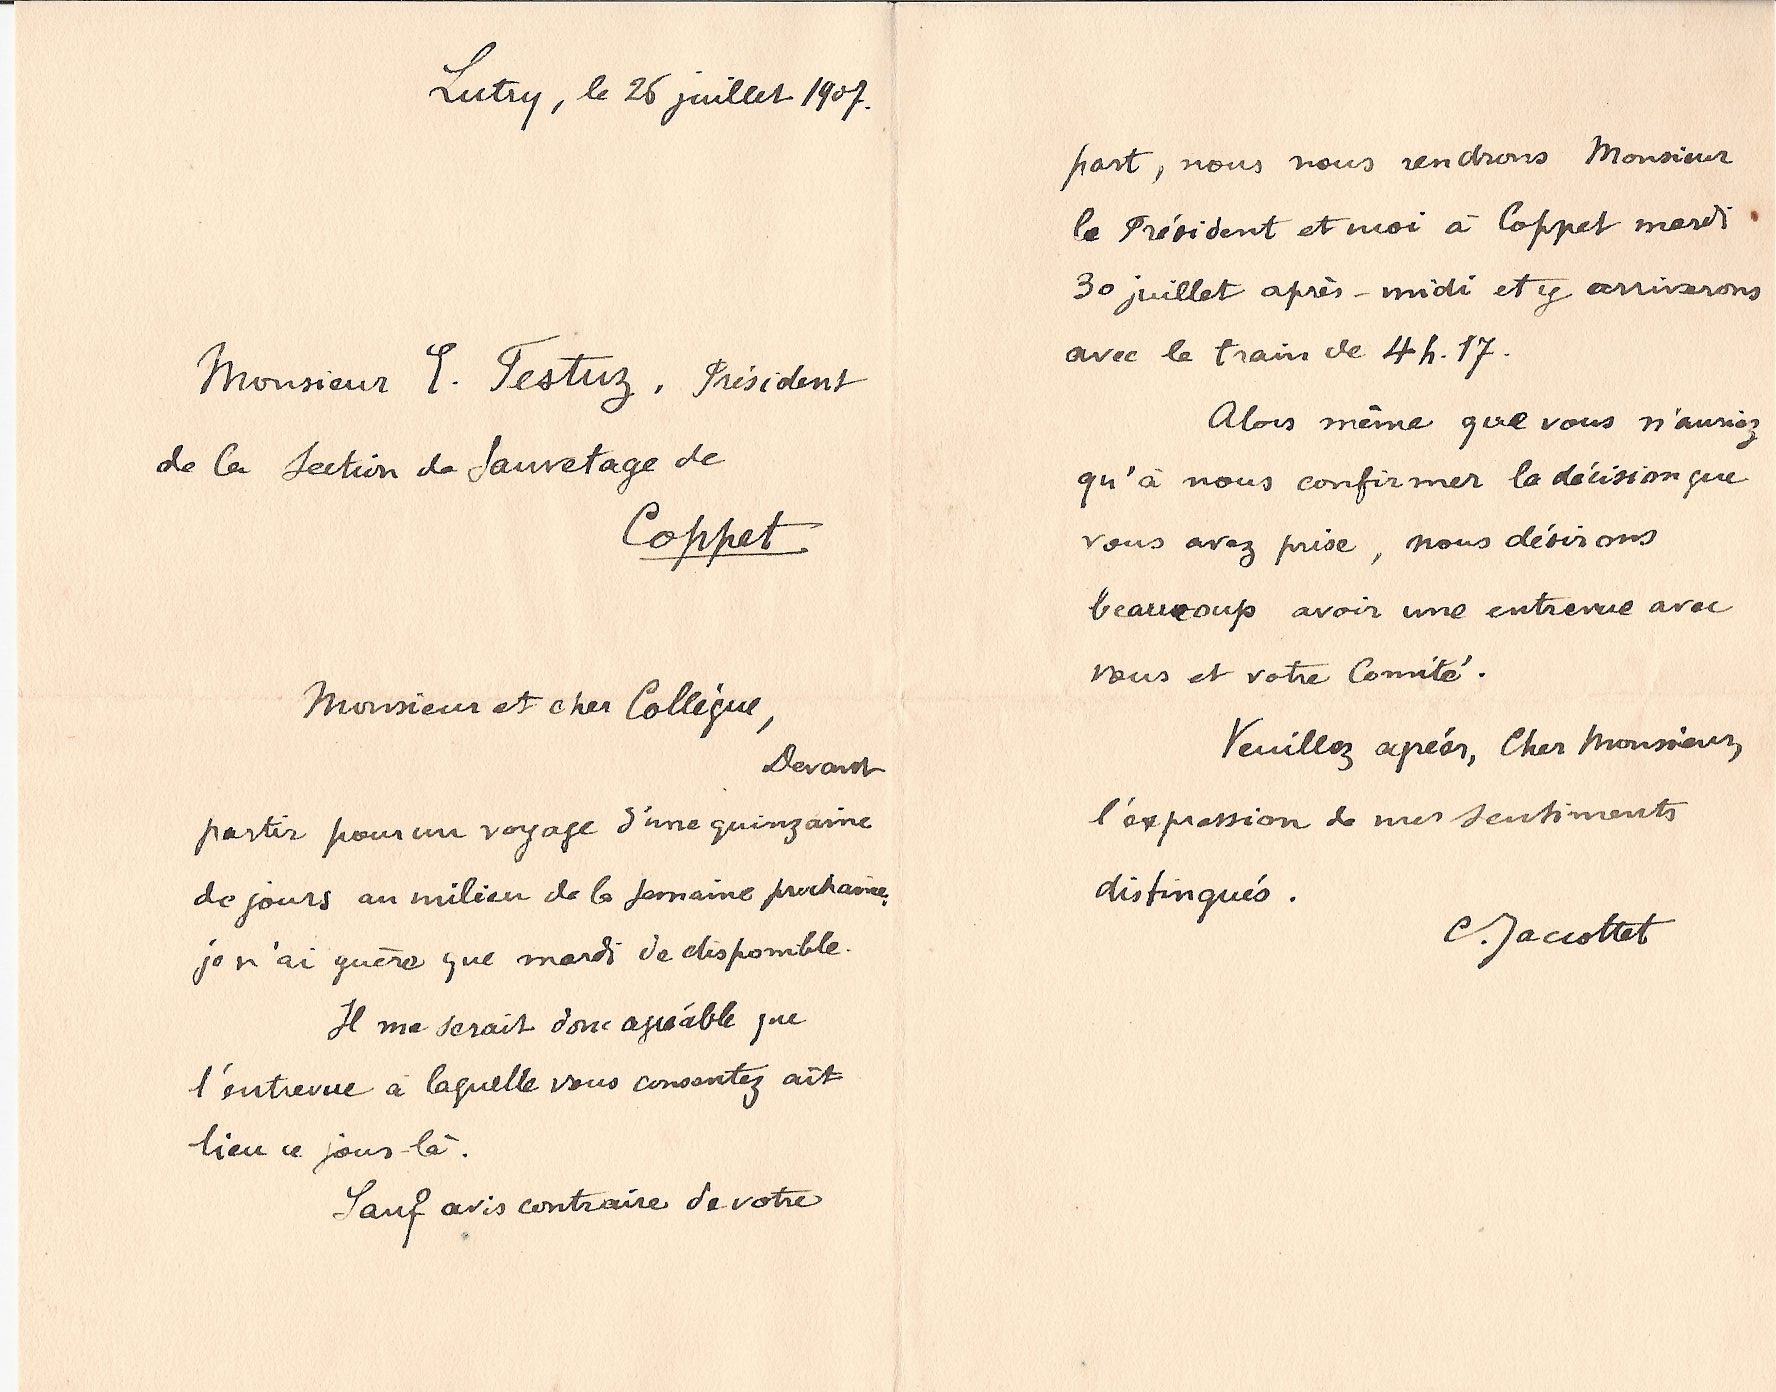 Lutry, le 26 juillet 1907.
Monsieur E. Testuz, Président
de la Section de Sauvetage de
Coppet.
Monsieur et cher Collègue,
Devant
partir pour un voyage d'une quinzaine
de jours au milieu de la semaine prochaine,
je n'ai guère que mardi de disponible.
Il me serait donc agréable que
l'entrevue à laquelle vous consentez ait
lieu ce jour-là.
Sauf avis contraire de votre
part, nous nous rendrons Monsieur
le Président et moi à Coppet mardi
30 juillet après-midi et y arriverons
avec le train de 4 h. 17.
Alors même que vous n'auriez
qu'à nous confirmer la décision que
vous avez prise, nous désirons
beaucoup avoir une entrevue avec
vous et votre Comité.
Veuillez agréer, Cher Monsieur,
l'expression de mes sentiments
distingués.
C. Jaccottet